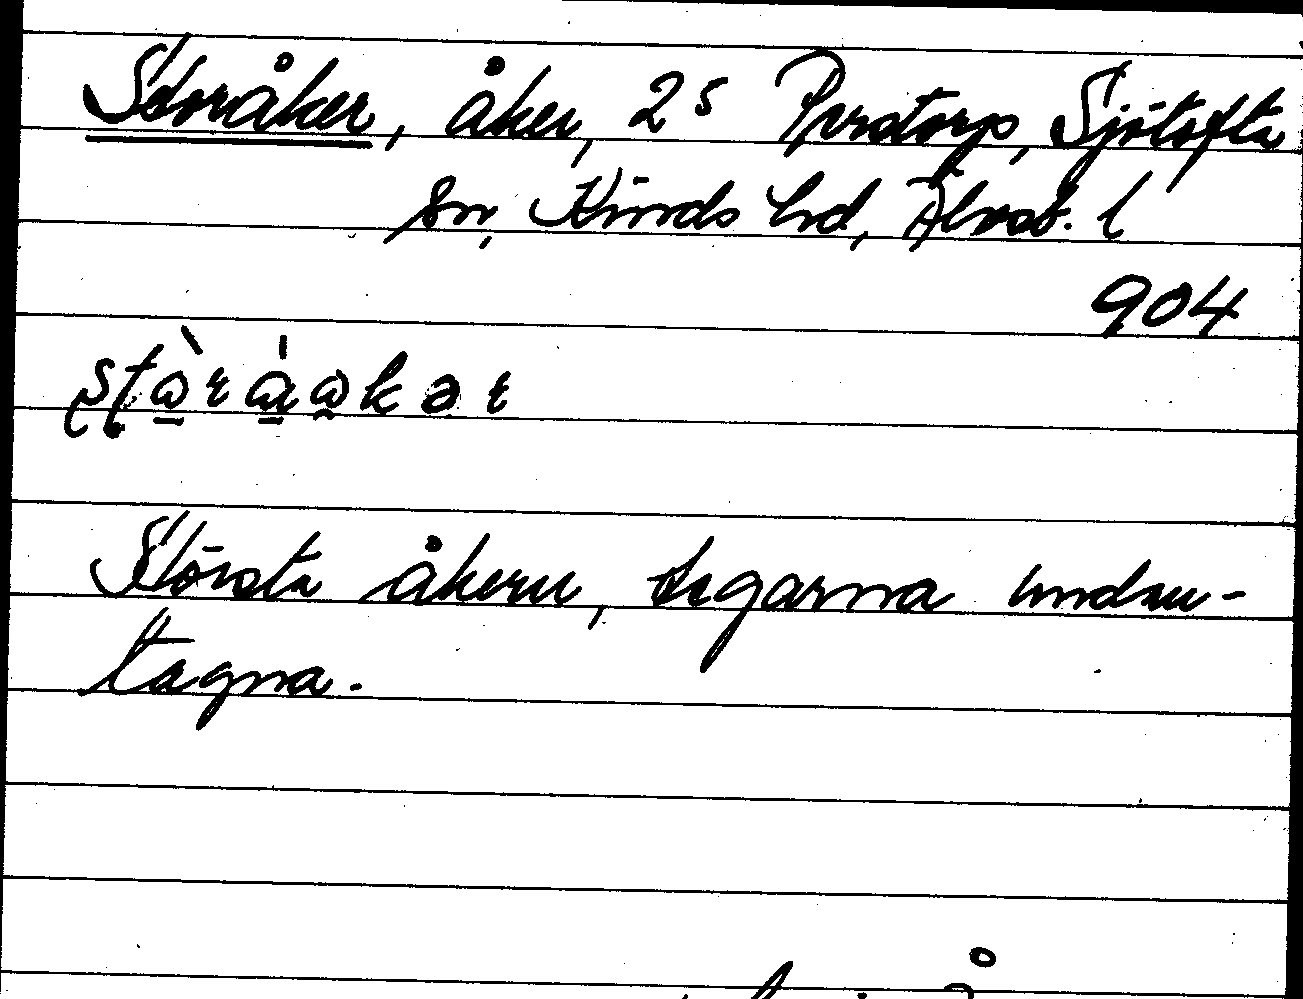 Storåker, åker, 2⁵ Perstorp, Sjötofta
sn, Kinds hd, Älvsb. l
904
Största åkern, tegarna undan-
tagna.